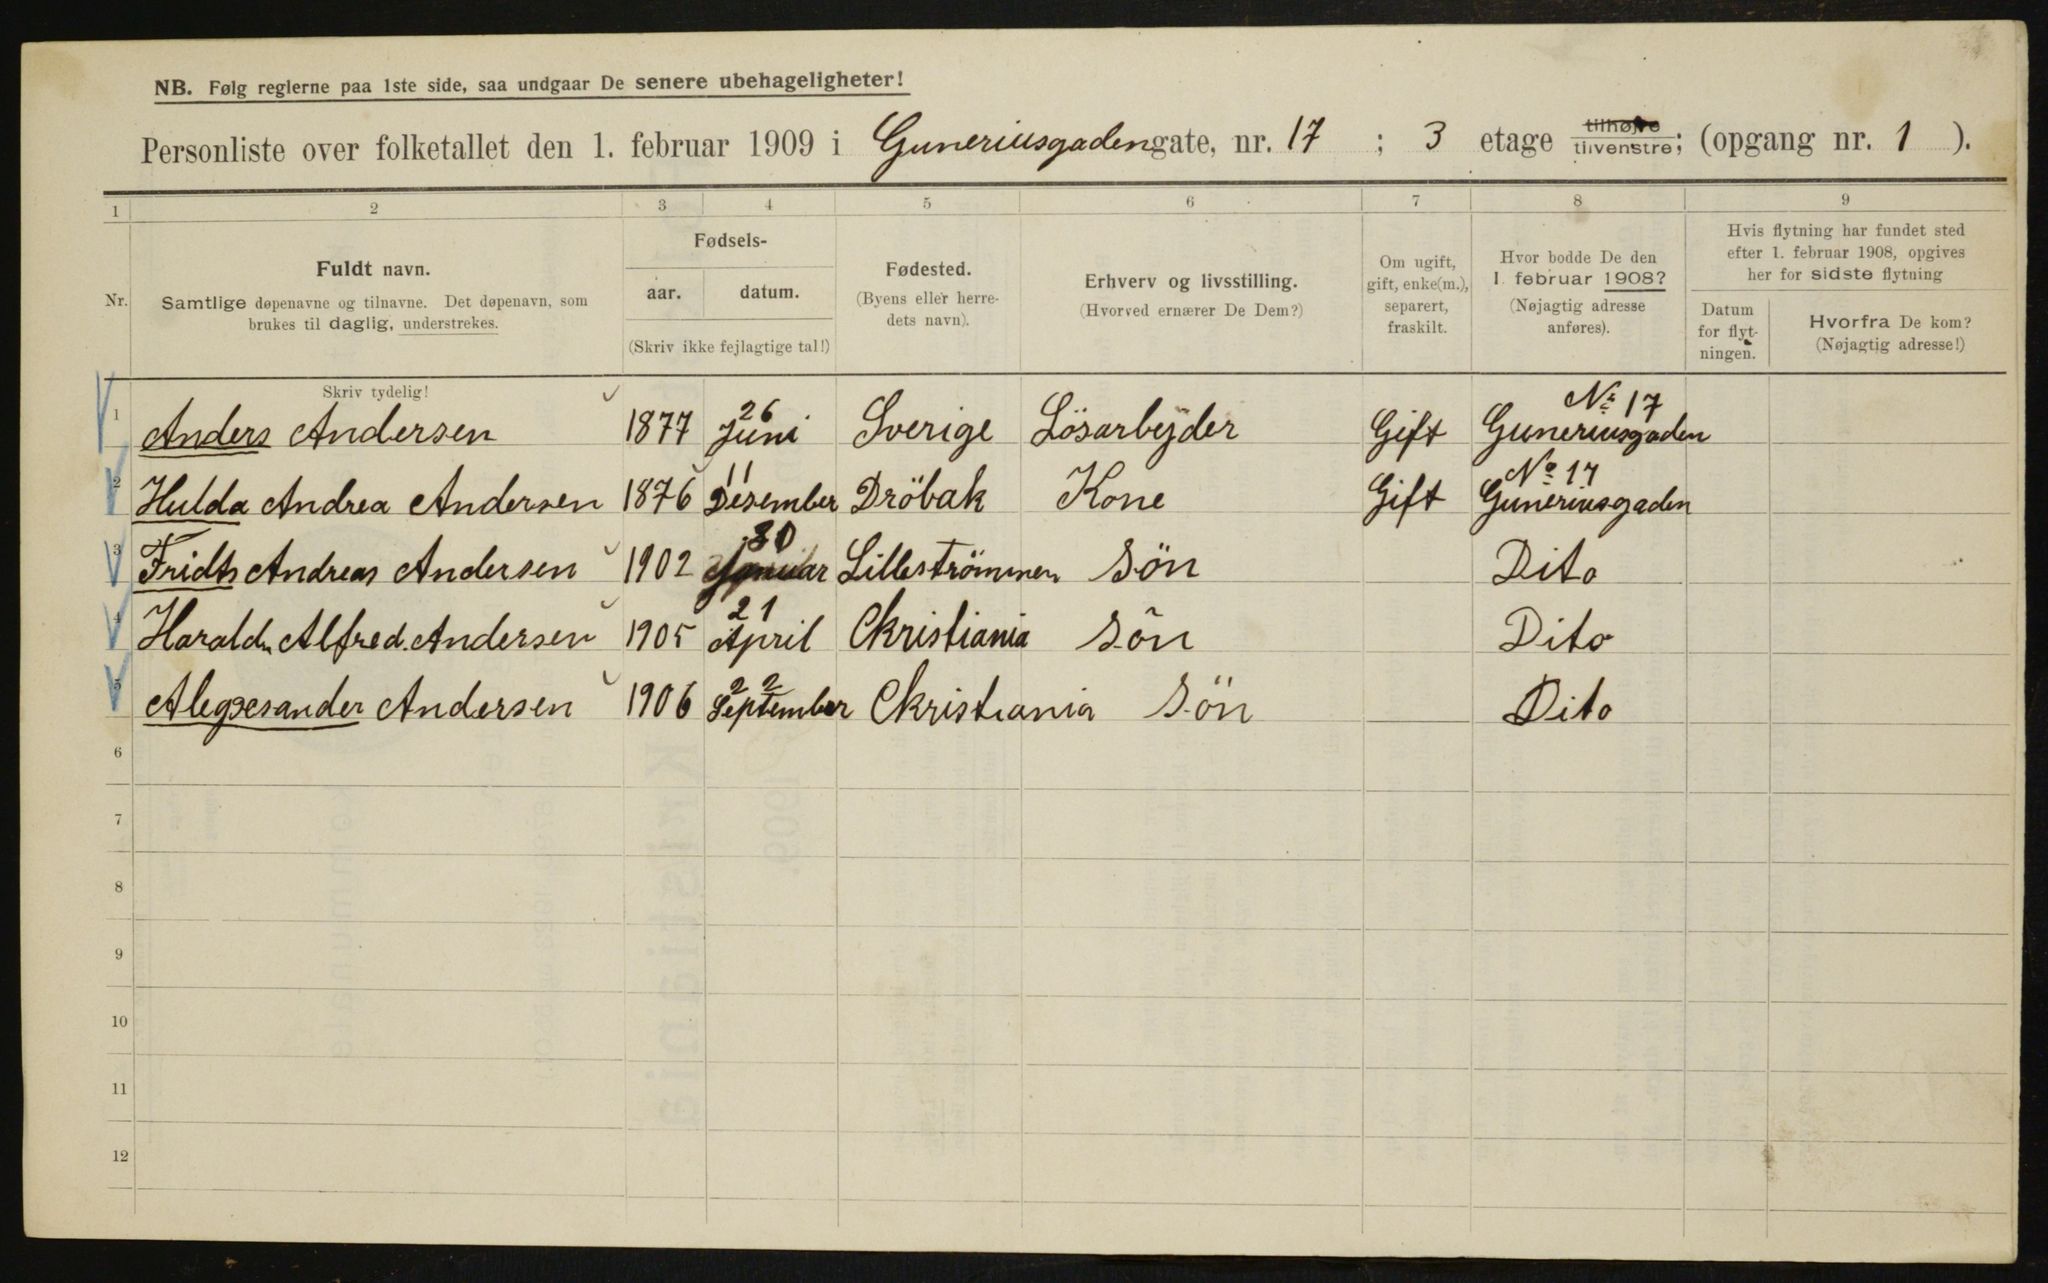 NB. Følg reglerne paa 1ste side, saa undgaar De senere ubehageligheter!
Personliste over folketallet den 1. februar 1909 i Guneriusgaden gate, nr. 17 ; 3 etage tilhøjre tilvenstre; (opgang nr. 1 ).
1 2 3 4 5 6 7 8 9
Nr.
Fuldt navn.
Samtlige døpenavne og tilnavne. Det døpenavn, som
brukes til daglig, understrekes.
Fødsels-
aar. datum.
(Skriv ikke fejlagtige tal!)
Fødested.
(Byens eller herre-
dets navn).
Erhverv og livsstilling.
(Hvorved ernærer De Dem?)
Om ugift,
gift, enke(m.),
separert,
fraskilt.
Hvor bodde De den
1. februar 1908?
(Nøjagtig adresse
anføres).
Hvis flytning har fundet sted
efter 1. februar 1908, opgives
her for sidste flytning
Datum
for flyt-
ningen.
Hvorfra De kom?
(Nøjagtig adresse!)
Skriv tydelig!
1 Anders Andersen 1877 26 Juni Sverige Lösarbejder Gift No 17 Guneriusgaden
2 Hulda Andrea Andersen 1876 11 Desember Dröbak Kone Gift No 17 Guneriusgaden
3 Andreas Andersen 1902 30 Januar Lilleströmmen Sön Dito
4 Harald Alfred Andersen 1905 21 April Christiania Sön Dito
5 Alegsesander Andersen 1906 22 September Christiania Sön Dito
6
7
8
9
10
11
12